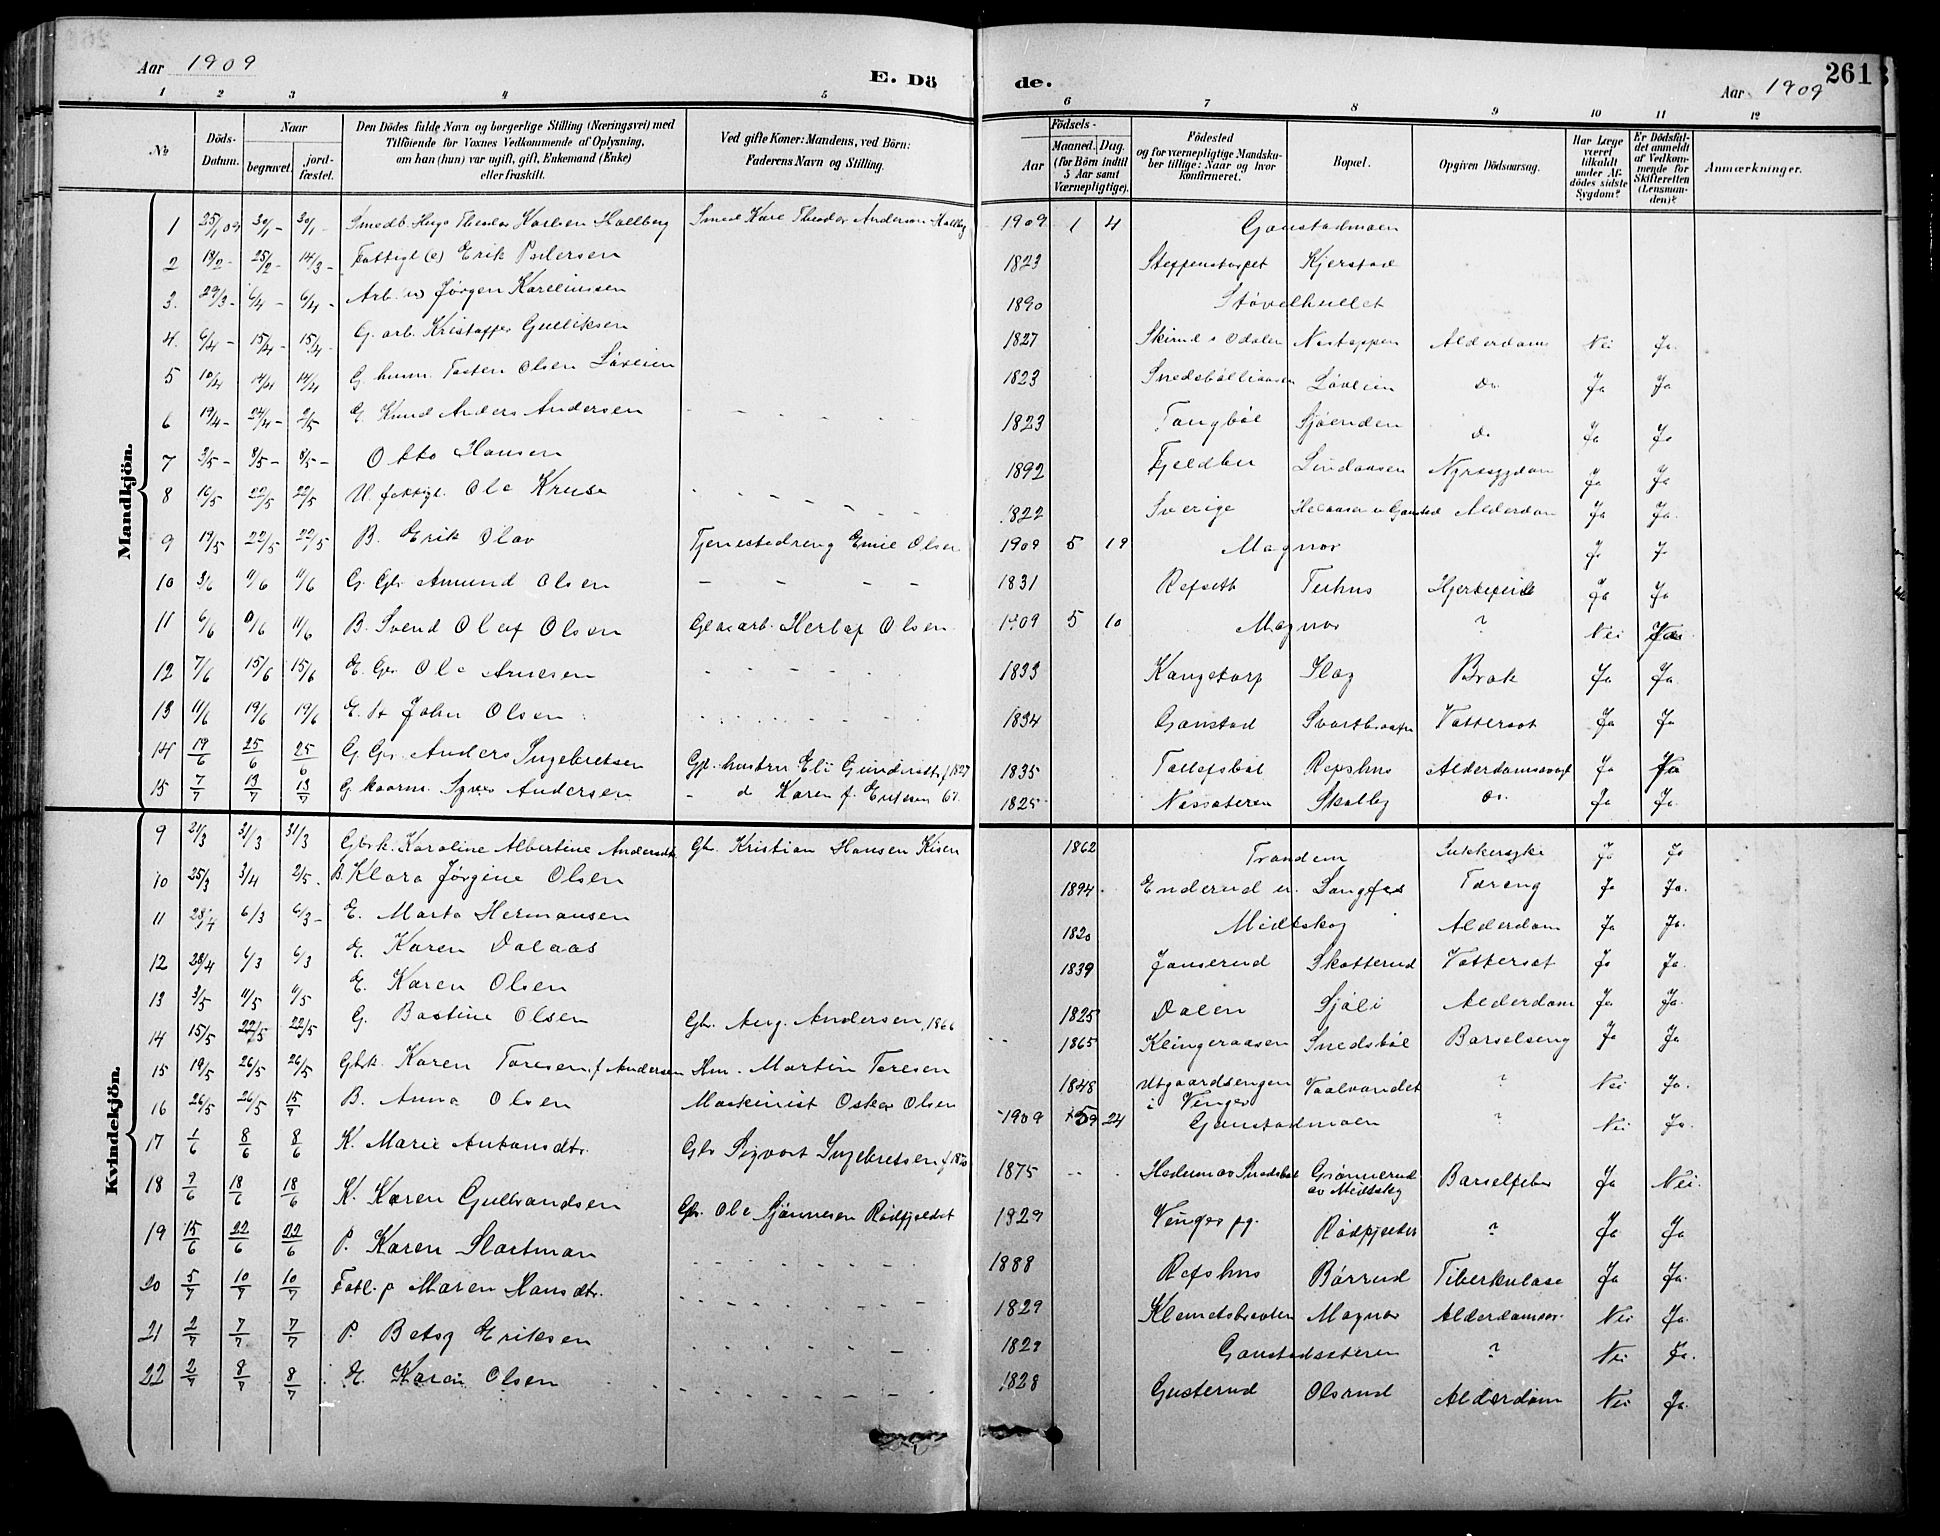 Aar 1909
E. Dö
de.
261
Aar 1909
1 2 3 4 5 6 7 8 9 10 11 12
No
Döds-Datum.
Naar
begravet.
jord-fæstet.
Den Dödes fulde Navn og borgerlige Stilling (Næringsvei) med
Tilföiende for Voxnes Vedkommende af Oplysning,
om han (hun) var ugift, gift, Enkemand (Enke)
eller fraskilt.
Ved gifte Koner: Mandens, ved Börn:
Faderens Navn og Stilling.
Födsels-
Aar
Maaned. Dag.
(for Börn indtil
5 Aar samt
Værnepligtige).
Födested
og for værnepligtige Mandska-
ber tillige: Naar og hvor
konfirmeret.
Bopæl.
Opgiven Dödsaarsag.
Har Læge
været
tilkaldt
under Af-
dödes sidste
Sygdom?
Er Dödsfal-
det anmeldt
af Vedkom-
mende for
Skifteretten
(Lensman-
den)?
Anmærkninger.
Mandkjön.
1 25/1 09 30/1 - 30/1 - Smedb. Hugo Theodor Karlsen Hallberg Smed Karl Theodor Anderson Hallbg 1909 1 4 Gaustadmoen
2 18/2 - 25/2 - 14/3 - Fattigl (e) Erik Pedersen 1823 Steffenstorpet Kjerstad
3. 29/3 - 6/4 - 6/4 - Arb. Jørgen Karelinsen 1890 Støvelhullet
4. 6/4 - 15/4 15/4 G. arb. Kristoffer Gulliksen 1827 Skirud i Odalen Nestoppen Alderdom Nei Ja.
5 10/4 14/4 14/4 G. husm. Tosten Olsen Løveien 1823 Snedsbølliaasen Løveien Do Ja Ja
6 19/4 - 24/4 - 2/5 E. Kund Anders Andersen 1823 Tangbøl Sjøenden Do Ja Ja
7 3/5 - 8/5 - 8/5 - Otto Hansen 1892 Fjeldbu Lindaasen Nyresygdom Ja Ja
8 16/5 22/5 22/5 U. fattigl. Ole Kruse 1822 Sverige Alderdom Ja Ja.
9 19/5 22/5 22/5 B. Erik Olav Tjenestedreng Emil Olsen 1909 5 19 Magnor Ja J
10 3/6 11/6 11/6 G. Gbr. Amund Olsen 1831 Refseth Terhus Hjertefeil Ja Ja
11 6/6 11/6 B. Svend Olaf Olsen Glasarb. Herlof Olsen 1909 5 10 Magnor ? Nei
12 7/6 15/6 15/6 E. Gbr Ole Arnesen 1833 Kangetorp Slag Brok Ja Ja.
13 11/6 19/6 19/6 E. John Olsen 1834 Gaustad Vattersot Ja Ja
14 19/6 25/6 25/6 G. Gbr. Anders Ingebretsen Gft. hustru Eli Gundersdtr f 1827 1835 Tollefsbøl Refshus Alderdomssvagh Ja
15 7/7 13/7 13/7 G. Andersen - d Karen f. Eriksen 1825 Nessæteren Skalby Do. Ja Ja.
Kvindekjön.
9 21/3 31/3 31/3 Gbrk. Karoline Albertine Andersdtr Gb. Kristian Hansen Kisen 1862 Trandem Sukkersyke Ja Ja
10 25/3 3/4 2/5. B. Klara Jørgine Olsen 1894 Enderud u. Langfos Tæring Ja Ja.
11 28/4 6/3 6/3 - E. Marta Hermansen 1820 Midtskog Alderdom Ja Ja.
12 28/4 6/3 6/3 E. Karen Dalaas 1839 Janserud Skotterud Vattersot Ja Ja.
13 3/5 11/5 11/5 E. Karen Olsen 1825 Dalen Sjøli Alderdom Ja Ja.
14 15/5 22/5 22/5 G. Bastine Olsen Gbr. Aug. Andersen, 1866 1865 Klingeraasen Snedsbøl Barselseng Ja Ja
15 19/5 26/5 26/5 Gbrk. Karen Toresen f Andersen Hm. Martin Toresen 1848 Utgaardsengen i Vinger Vaalvandet ? Nei Ja.
16 26/5 26/5 15/7 B. Anna Olsen Maskinist Oskar Olsen 1909 5 24 Gaustadmoen ? Nei Ja.
17 1/6 8/6 8/6 K. Marie Antonsdtr. Gbr Sigvart Ingebretsen f 1870 1875 Hedum av Snedsbøl Grønnerud av Midtskog Barselfeber Ja Nei.
18 9/6 18/6 18/6 K. Karen Gulbrandsen Gbr. Ole Rødfjeldet 1829 Vinger pg. Rødfjeldet ? Ja Ja
19 15/6 22/6 22/6 P. Karen Slaatman 1888 Refshus Børrud Tiberkulose Ja Ja.
20 5/7 10/7 10/7 Fatl. p Maren Hansdtr. 1829 Magnor Alderdomssv. Nei Ja.
21 2/7 7/7 7/7 P. Betsy Eriksen 1829 Gaustadsæteren ? Nei Ja.
22 2/7 8/7 8/7 E. Karen Olsen 1828 Gusterud Olsrud Alderdom Nei Ja.